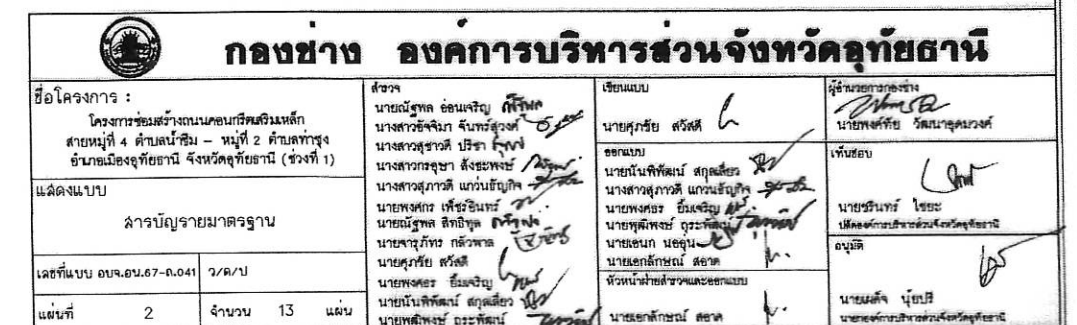 กองช่าง องค์การบริหารส่วนจังหวัดอุทัยธานี
ชื่อโครงการ :
โครงการซ่อมสร้างถนนคอนกรีตเสริมเหล็ก
สายหมู่ที่ 4 ตำบลน้ำซึม – หมู่ที่ 2 ตำบลท่าซุง
อำเภอเมืองอุทัยธานี จังหวัดอุทัยธานี (ช่วงที่ 1)
แสดงแบบ
สารบัญรายมาตรฐาน
เลขที่แบบ อบจ.อน.67-ถ.041
ว/ด/ป
แผ่นที่ 2
จำนวน 13 แผ่น
สำรวจ
นายณัฐพล อ่อนเจริญ
นางสาวอัจจิมา จันทร์สุวงศ์
นางสาวสุชาวดี ปรีชา
นางสาวกรอุษา สังชะพงษ์
นางสาวสุภาวดี แกว่นธัญกิจ
นายพงศกร เพ็ชรอินทร์
นายณัฐพล สิทธิพูล
นายจารุภัทร กลัวพาล
นายศุภชัย สวัสดี
นายพงศธร ยิ้มเจริญ
นายนันพิพัฒน์ สกุลเสี่ยว
นายพุฒิพงษ์ ถุระพัฒน์
เขียนแบบ
นายศุภชัย สวัสดี
ออกแบบ
นายนันพิพัฒน์ สกุลเสี่ยว
นางสาวสุภาวดี แกวนธัญกิจ
นายพงศธร ยิ้มเจริญ
นายพุฒิพงษ์ ถุระพัฒน์
นายเอนก นออุ่น
นายเอกลักษณ์ สอาด
หัวหน้าฝ่ายสำรวจและออกแบบ
นายเอกลักษณ์ สอาด
ผู้อำนวยการกองช่าง
นายพงศ์ทัย วัฒนาอุดมวงศ์
เห็นชอบ
นายชรินทร์ ไชยะ
ปลัดองค์การบริหารส่วนจังหวัดอุทัยธานี
อนุมัติ
นายเผด็จ นุ้ยปรี
นายกองค์การบริหารส่วนจังหวัดอุทัยธานี